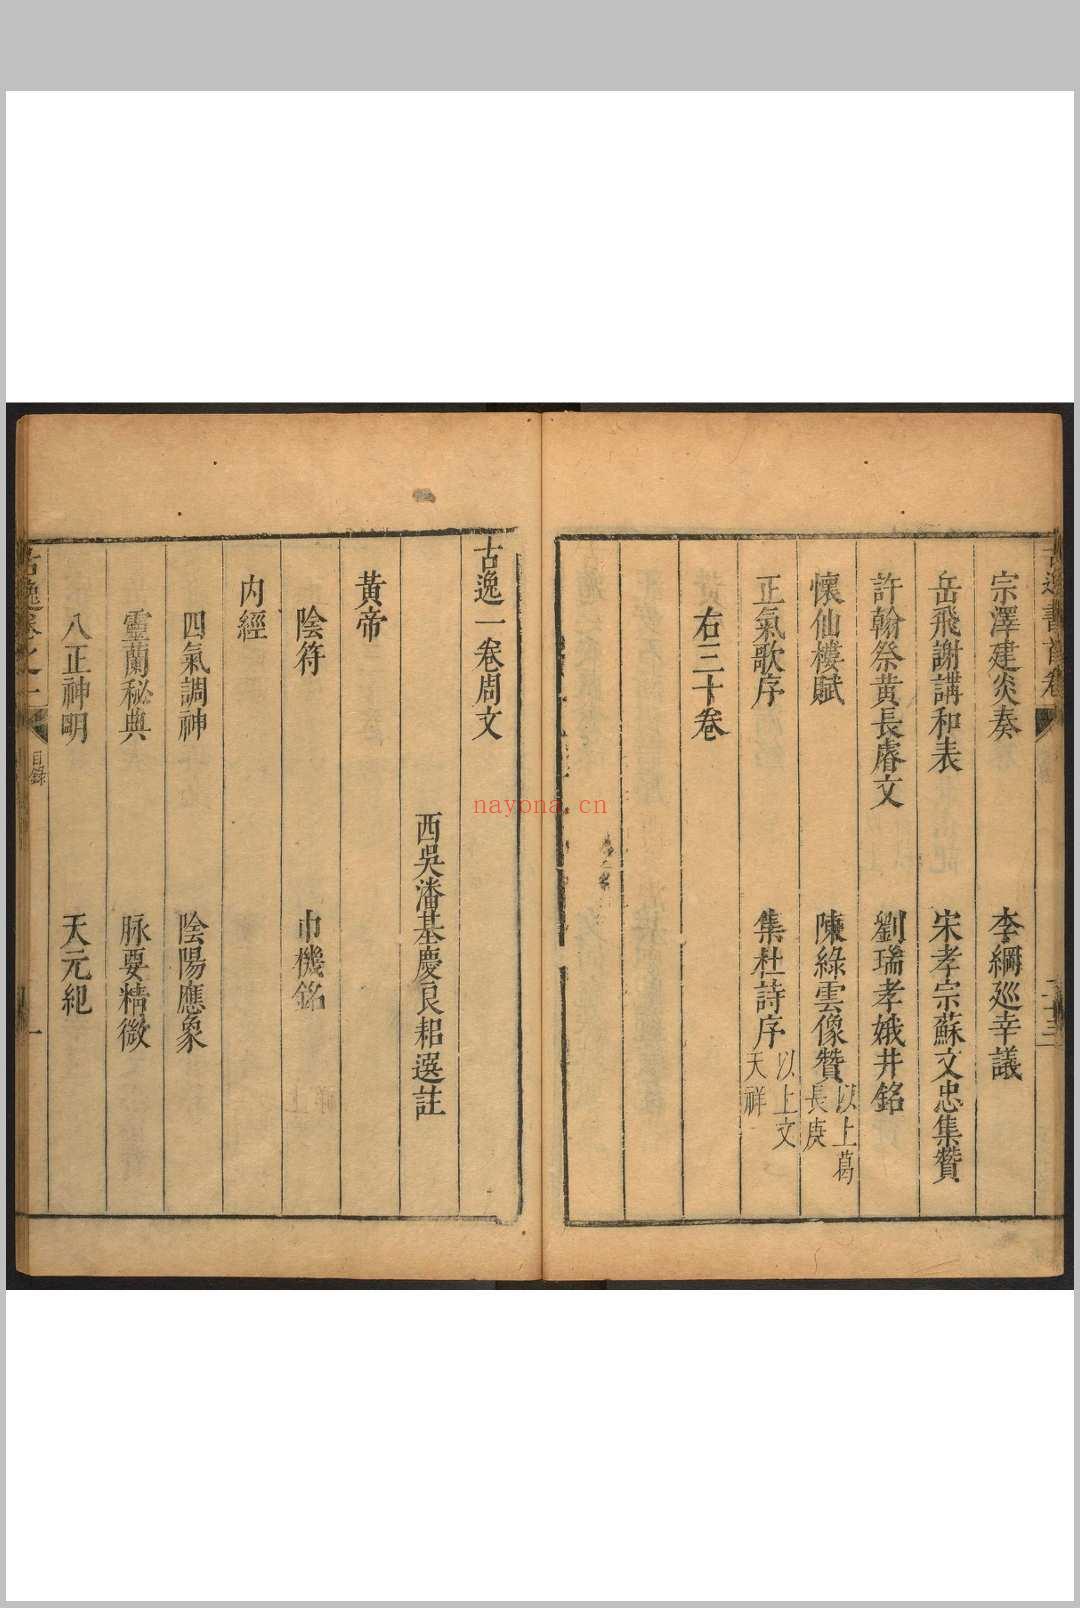 古逸書首卷
二十三
宗澤建炎奏　李綱廵幸議
岳飛謝講和表　宋孝宗蘇文忠集贊
許翰祭黃長睿文　劉瑞孝娥井銘
懷仙樓賦　陳綠雲像贊以上葛長庚
正氣歌序　集杜詩序以上文天祥
右三十卷
古逸一卷周文
西吳潘基慶良耜選註
黃帝
陰符　巾機銘
内經
四氣調神　陰陽應象
靈蘭秘典　脉要精微
八正神明　天元紀
古逸卷之一
目錄
一
nayona.cn